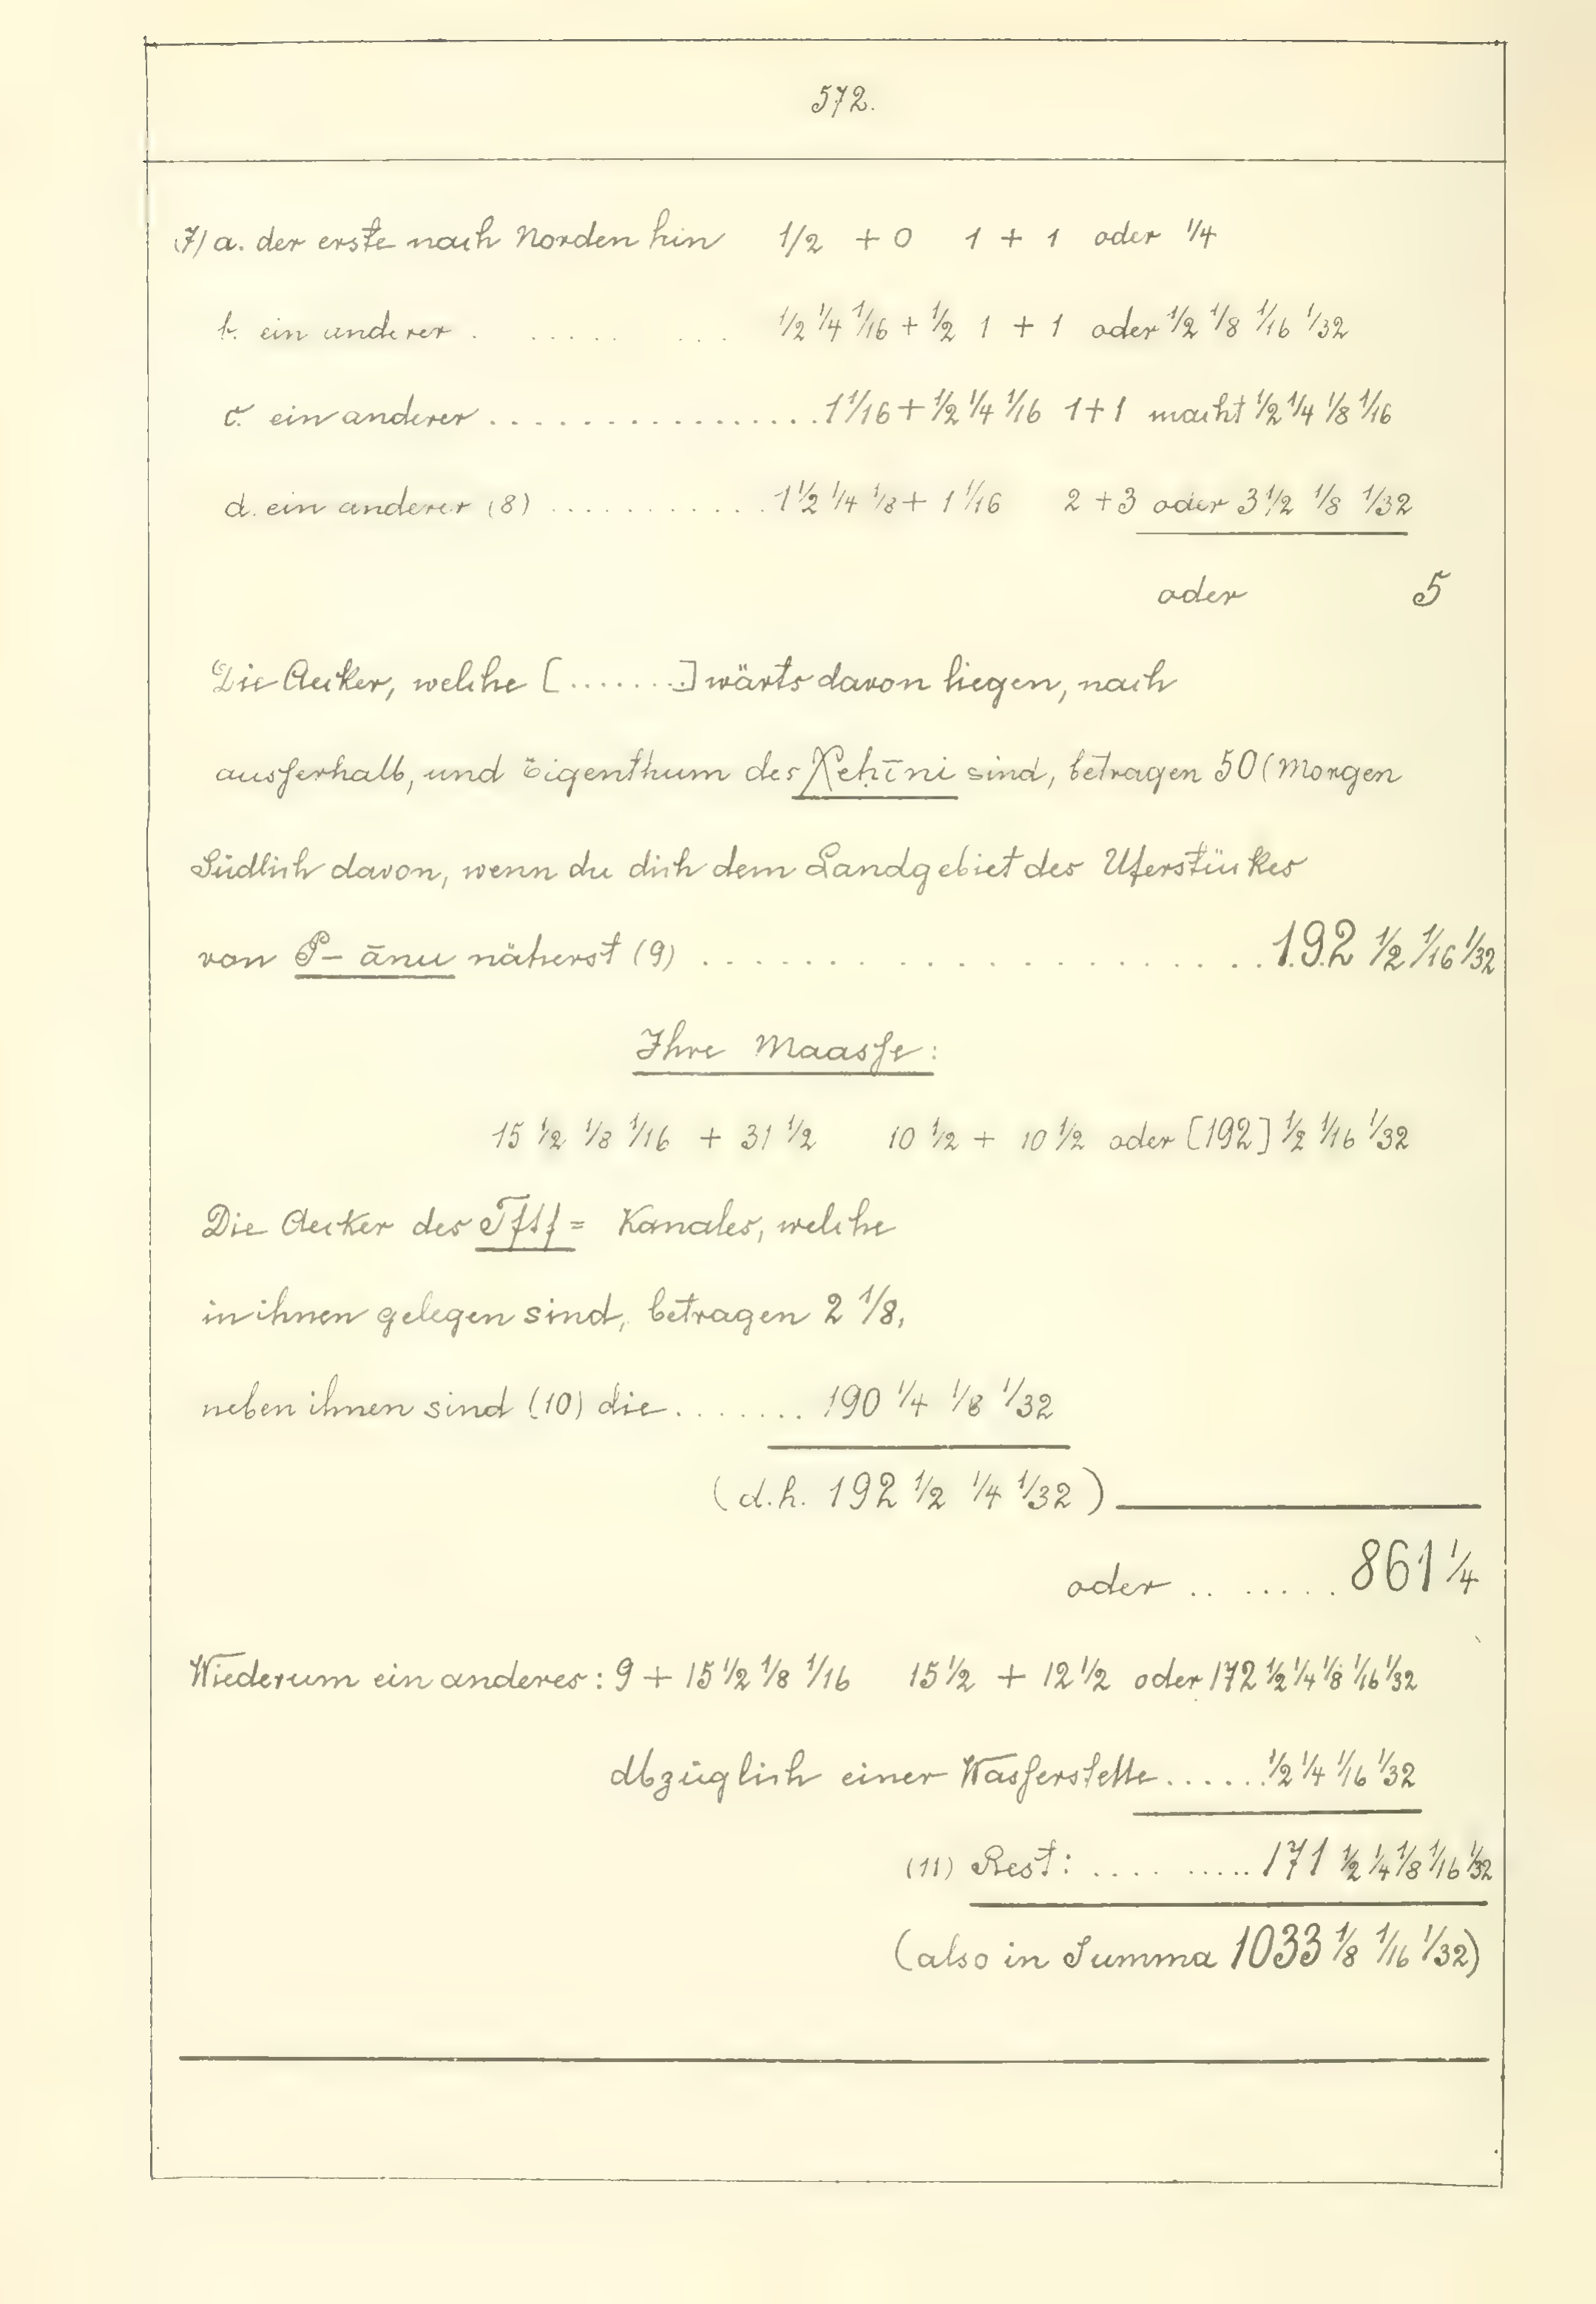 572.
7) a. der erste nach Norden hin 1/2 + 0 1 + 1 oder 1/4
b. ein anderer . ..... ... 1/2 1/4 1/16 + 1/2 1 + 1 oder 1/2 1/8 1/16 1/32
c. ein anderer ................ 1 1/16 + 1/2 1/4 1/16 1+1 macht 1/2 1/4 1/8 1/16
d. ein anderer (8) ........... 1 1/2 1/4 1/8 + 1 1/16 2 + 3 oder 3 1/2 1/8 1/32
oder 5
Die Aecker, welche [.......] wärts davon liegen, nach
ausserhalb, und Eigenthum des Xeḥīni sind, betragen 50 (Morgen
Südlich davon, wenn du dich dem Landgebiet des Uferstückes
von P-ānu näherst (9) .................. 192 1/2 1/16 1/32
Ihre Maasse:
15 1/2 1/8 1/16 + 31 1/2 10 1/2 + 10 1/2 oder [192] 1/2 1/16 1/32
Die Aecker des = Kanales, welche
in ihnen gelegen sind, betragen 2 1/8,
neben ihnen sind (10) die ....... 190 1/4 1/8 1/32
(d.h. 192 1/2 1/4 1/32)
oder .. ..... 861 1/4
Wiederum ein anderes: 9 + 15 1/2 1/8 1/16 15 1/2 + 12 1/2 oder 172 1/2 1/4 1/8 1/16 1/32
abzüglich einer Wasserstelle ...... 1/2 1/4 1/16 1/32
(11) Rest: .... ..... 171 1/2 1/4 1/8 1/16 1/32
(also in Summa 1033 1/8 1/16 1/32)